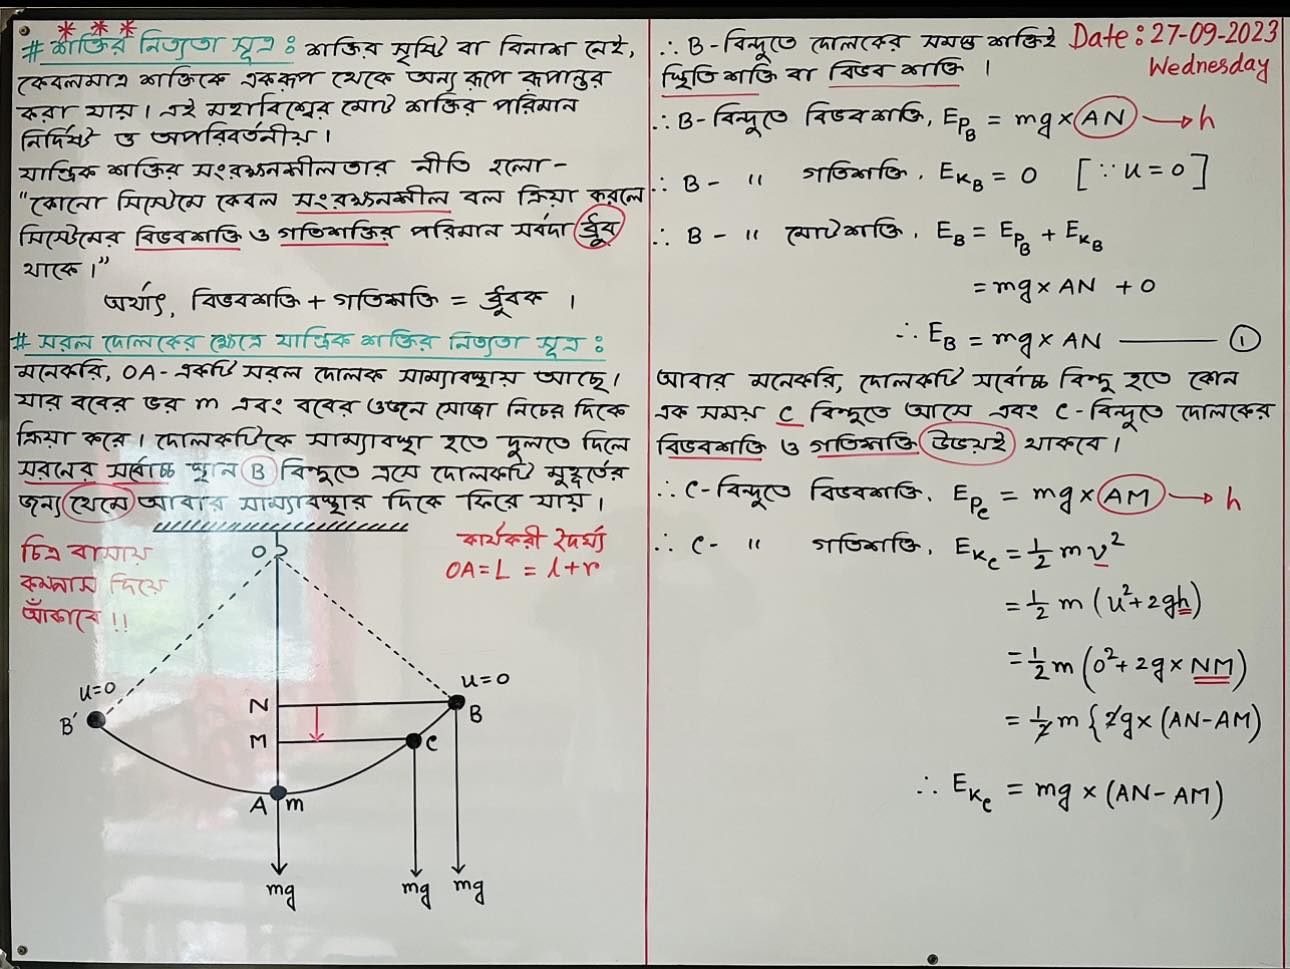 ***
# শক্তির নিত্যতা সূত্র : শক্তির সৃষ্টি বা বিনাশ নেই,
কেবলমাত্র শক্তিকে একরূপ থেকে অন্য রূপে রূপান্তর
করা যায়। এই মহাবিশ্বের মোট শক্তির পরিমান
নির্দিষ্ট ও অপরিবর্তনীয়।
যান্ত্রিক শক্তির সংরক্ষনশীলতার নীতি হলো-
"কোনো সিস্টেমে কেবল সংরক্ষনশীল বল ক্রিয়া করলে
সিস্টেমের বিভবশক্তি ও গতিশক্তির পরিমান সর্বদা ধ্রুব
থাকে।"
অর্থাৎ, বিভবশক্তি + গতিশক্তি = ধ্রুবক ।
# সরল দোলকের ক্ষেত্রে যান্ত্রিক শক্তির নিত্যতা সূত্র :
মনেকরি, OA- একটি সরল দোলক সাম্যাবস্থায় আছে।
যার ববের ভর m এবং ববের ওজন সোজা নিচের দিকে
ক্রিয়া করে। দোলকটিকে সাম্যাবস্থা হতে দুলতে দিলে
সরনের সর্বোচ্চ স্থান B বিন্দুতে এসে দোলকটি মুহূর্তের
জন্য থেমে আবার সাম্যাবস্থার দিকে ফিরে যায়।
চিত্র বাসায়
কম্পাস দিয়ে
আঁকাবে !!
কার্যকরী দৈর্ঘ্য
OA = L = l + r
O
u=0
B′
N
M
A
m
u=0
B
C
mg
mg
mg
∴ B-বিন্দুতে দোলকের সমস্ত শক্তিই
স্থিতি শক্তি বা বিভব শক্তি ।
Date : 27-09-2023
Wednesday
∴ B-বিন্দুতে বিভবশক্তি, E_{P_B} = mg × AN → h
∴ B- " গতিশক্তি, E_{K_B} = 0 [∵ u = 0]
∴ B- " মোটশক্তি, E_B = E_{P_B} + E_{K_B}
= mg × AN + 0
∴ E_B = mg × AN —— ①
আবার মনেকরি, দোলকটি সর্বোচ্চ বিন্দু হতে কোন
এক সময় C বিন্দুতে আসে এবং C-বিন্দুতে দোলকের
বিভবশক্তি ও গতিশক্তি উভয়ই থাকবে।
∴ C-বিন্দুতে বিভবশক্তি, E_{P_C} = mg × AM → h
∴ C- " গতিশক্তি, E_{K_C} = ½ m v²
= ½ m (u² + 2gh)
= ½ m (0² + 2g × NM)
= ½ m {2g × (AN - AM)
∴ E_{K_C} = mg × (AN - AM)